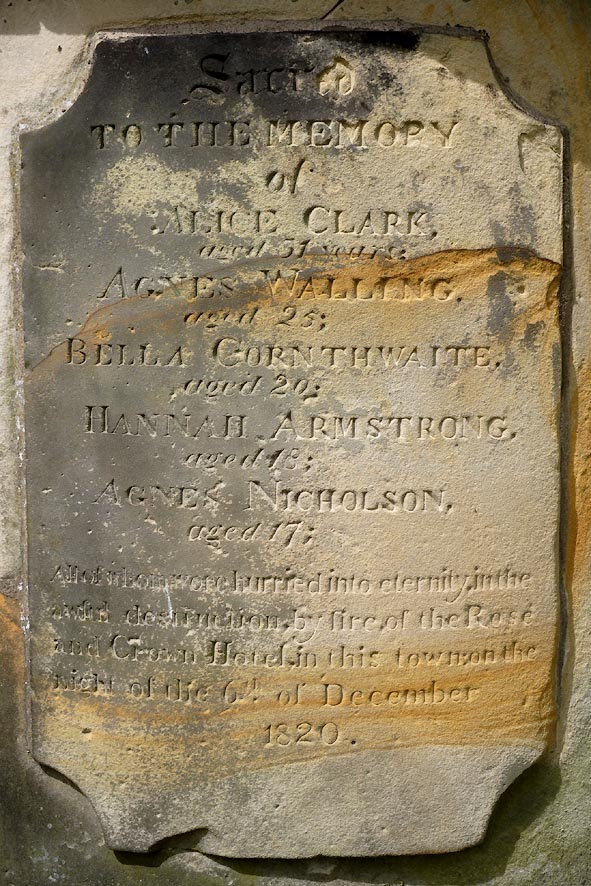 Sacred
TO THE MEMORY
of
ALICE CLARK,
aged 31 years;
AGNES WALLING,
aged 25;
BELLA CORNTHWAITE,
aged 20;
HANNAH ARMSTRONG,
aged 18;
AGNES NICHOLSON,
aged 17;
All of whom were hurried into eternity, in the
awful destruction, by fire, of the Rose
and Crown Hotel, in this town: on the
night of the 6th of December
1820.